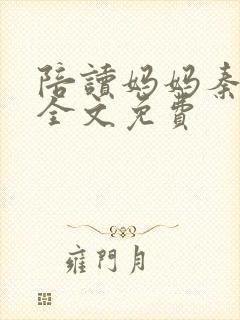 陪讀媽媽秦
全文免費
雍門月